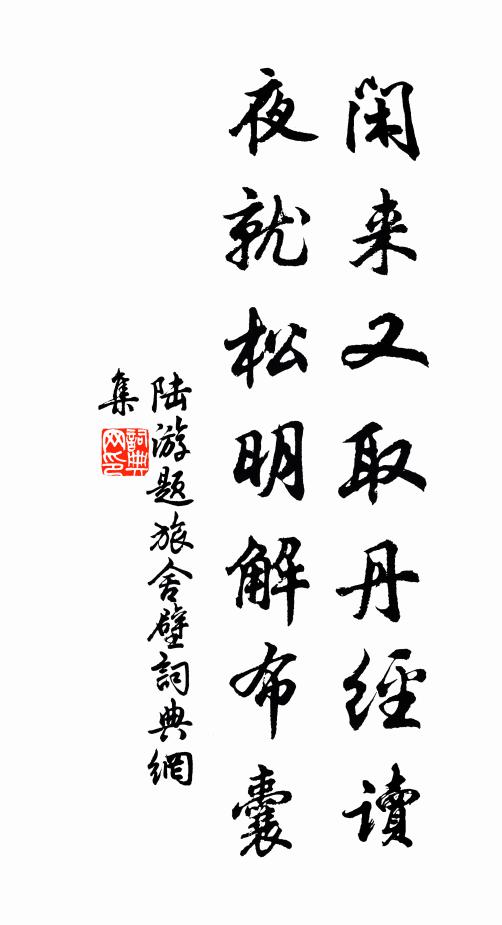 闲来又取丹經讀
夜就松明解布囊
陆游题旅舍壁詞典網
集
詞典
网印